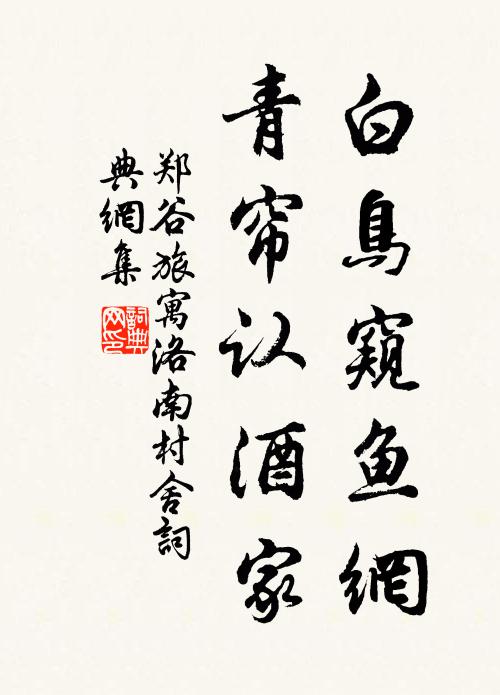 白鳥窺鱼網
青帘认酒家
郑谷旅寓洛南村舍詞
典網集
詞典网印